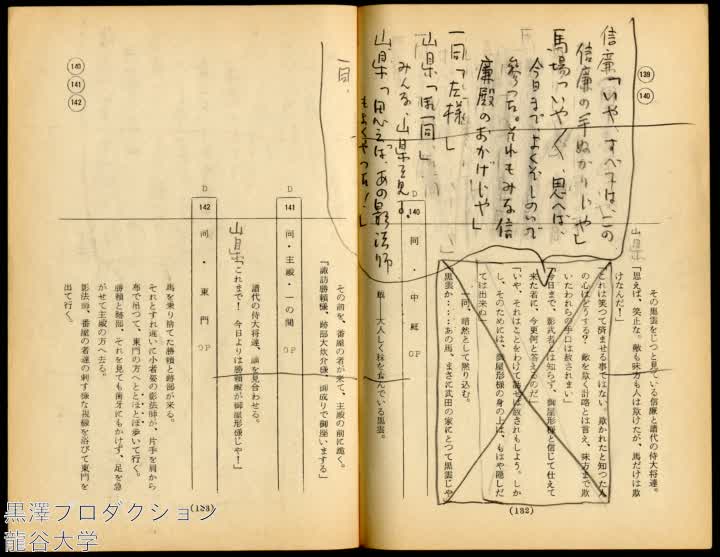 139
140
信廉「いや、すべては、この
信廉の手ぬかりじゃ」
馬場「いや〳〵、思へば、
今日まで、よくぞしのいで
参った。それもみな信
廉殿のおかげじゃ」
一同「左様」
山県「
みんな、山県を見る。
山県「思へば、あの影法師
もよくやった！」
一同、
山県
その黒雲をじっと見ている信廉と譜代の侍大将達。
「思えば、笑止な。敵も味方も人は欺けたが、馬だけは欺
けなんだ！」
「これは笑って済ませる事ではない。欺かれたと知った人
の心はどうする？　敵を欺く計略とは言え、味方まで欺
いたわれらの手口は赦されまい」
「今日まで、影武者とは知らず、御屋形様と信じて仕えて
来た者に、今更何と答えるのだ」
「いや、それはことをわけて話せば赦されもしよう。しか
し、そのためには、御屋形様の身の上は、もはや隠しだ
ては出来ぬ」
一同、暗然として黙り込む。
「黒雲か……あの馬、まさに武田の家にとって黒雲じゃ
」
D
140
同・中庭
OP
大人しく秣を食んでいる黒雲。
(132)
140
141
142
その前を、番屋の者が来て、主殿の前に跪く。
「諏訪勝頼様、跡部大炊介様、御成りで御座いまする」
D
141
同・主殿・一の間
OP
譜代の侍大将達、顔を見合わせる。
山県
「これまで！　今日よりは勝頼殿が御屋形様じゃ！」
D
142
同・東門
OP
馬を乗り捨てた勝頼と跡部が来る。
それとすれ違いに小者姿の影法師が、片手を肩から
布で吊って、東門の方へとぼとぼ歩いて行く。
勝頼と跡部、それを見ても歯牙にもかけず、足を急
がせて主殿の方へ去る。
影法師、番屋の者達の刺す様な視線を浴びて東門を
出て行く。
(133)
黒澤プロダクション
龍谷大学